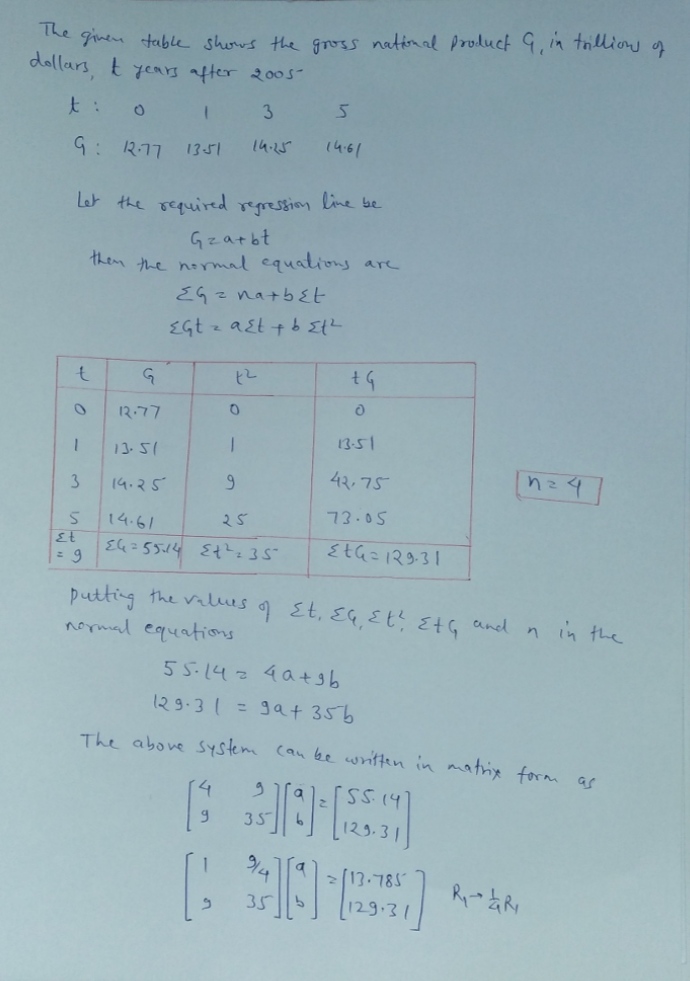 The given table shows the gross national product G, in trillions of
dollars, t years after 2005
t : 0 1 3 5
G : 12.77 13.51 14.25 14.61
Let the required regression line be
G = a + bt
then the normal equations are
ΣG = na + bΣt
ΣGt = aΣt + bΣt²
t G t² tG
0 12.77 0 0
1 13.51 1 13.51
3 14.25 9 42.75 n = 4
5 14.61 25 73.05
Σt = 9 ΣG = 55.14 Σt² = 35 ΣtG = 129.31
putting the values of Σt, ΣG, Σt², ΣtG and n in the
normal equations
55.14 = 4a + 9b
129.31 = 9a + 35b
The above system can be written in matrix form as
[4 9] [a] = [55.14]
[9 35] [b] [129.31]
[1 9/4] [a] = [13.785]
[9 35] [b] [129.31] R₁ → 1/4 R₁